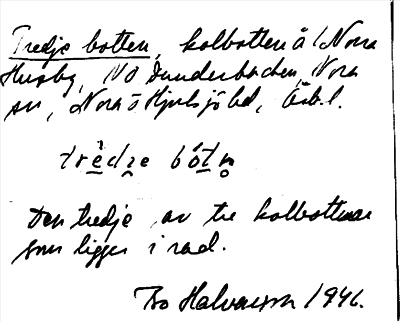 Tredje botten, kolbotten å 1/Nora
Husby, NO Dunderbacken, Nora
sn, Nora o Hjulsjö bd, Örb.l.
trèdʒe bótn̥
Den tredje av tre kolbottnar
som ligger i rad.
Bo Halvarson 1946.